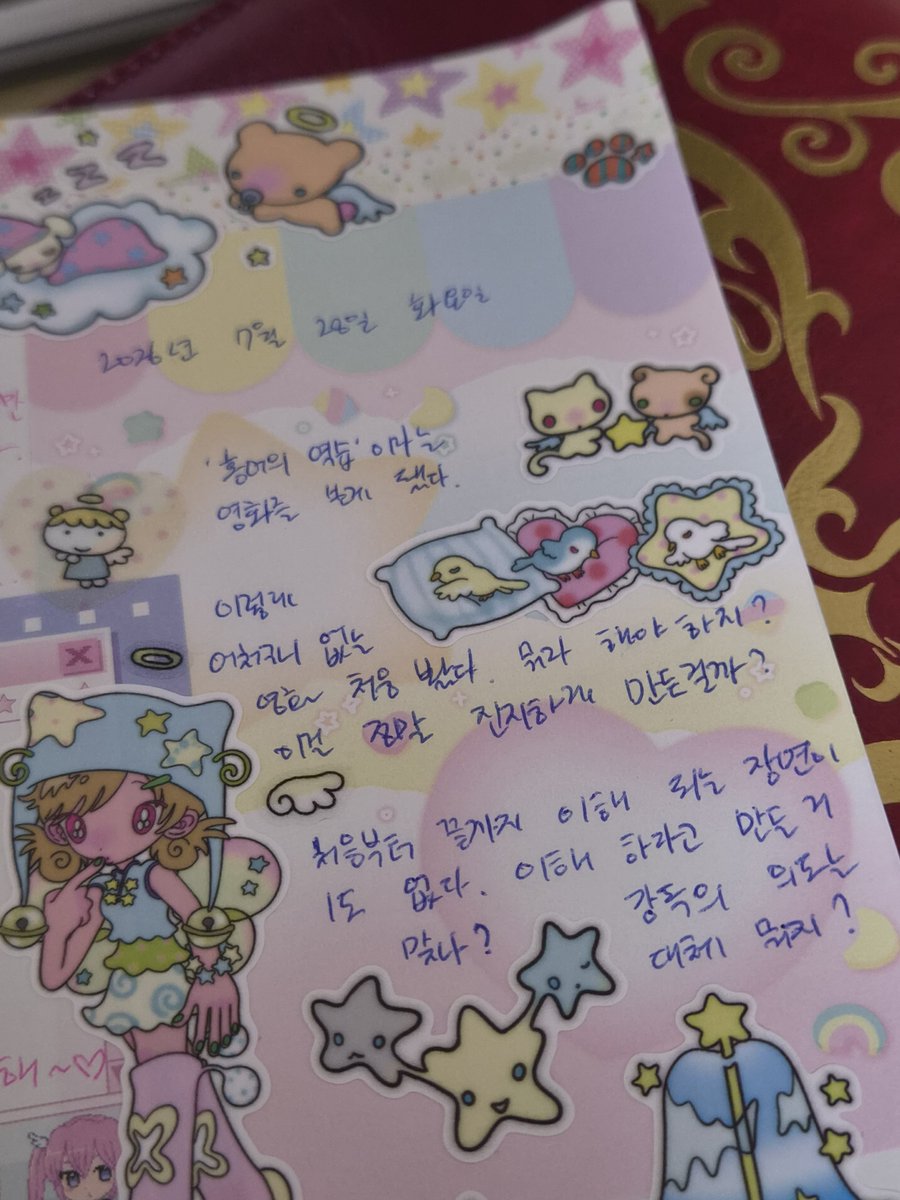 z z z
2026년 7월 28일 화요일
'홍어의 역습'이라는
영화를 보게 됐다.
이렇게
어처구니 없는
영화 처음 봤다. 뭐라 해야 하지?
이건 정말 진지하게 만든걸까?
처음부터 끝까지 이해 되는 장면이
1도 없다. 이해 하라고 만든 거
맞나? 감독의 의도는
대체 뭐지?
해~♡